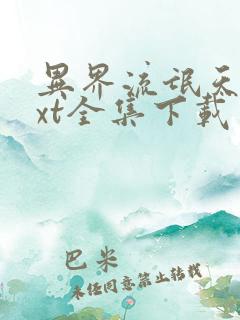 異界流氓天
xt全集下載
巴米
未经同意禁止转载